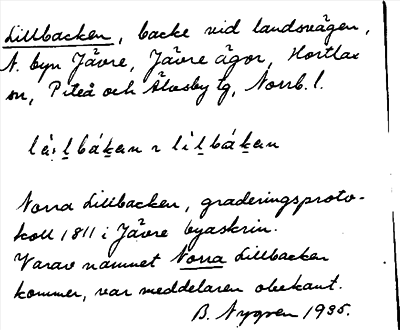 Lillbacken, backe vid landsvägen,
N. byn Jävre, Jävre ägor, Hortlax
sn, Piteå och Älvsby tg, Norrb. l.
Norra Lillbacken, graderingsproto-
koll 1811 i Jävre byaskrin.
Varav namnet Norra Lillbacken
kommer, var meddelaren obekant.
B. Nygren 1935.